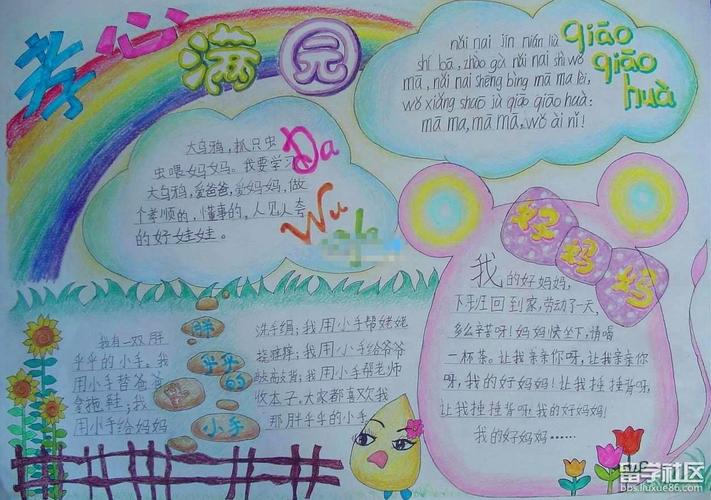 孝心满园
大乌鸦,抓只虫
虫喂妈妈。我要学习
大乌鸦,爱爸爸,爱妈妈,做
个孝顺的,懂事的,人见人夸
的好娃娃。
Da
Wu
nǎi nai jīn nián liù
shí bā, zhào gù nǎi nai shì wǒ
mā, nǎi nai shēng bìng mā ma lèi,
wǒ xiǎng shāo jù qiāo qiāo huà:
mā ma, mā mā, wǒ ài nǐ!
qiāo
qiāo
huà
我有一双胖
乎乎的小手。我
用小手替爸爸
拿拖鞋;我
用小手给妈妈
胖
乎乎
的
小手
洗手绢;我用小手帮姥姥
挠痒痒;我用小手给爷爷
敲敲背;我用小手帮老师
收本子,大家都喜欢我
那胖乎乎的小手。
好妈妈
我的好妈妈,
下班回到家,劳动了一天,
多么辛苦呀!妈妈快坐下,请喝
一杯茶。让我亲亲你呀,让我亲亲你
呀,我的好妈妈!让我捶捶背呀,
让我捶捶背呀,我的好妈妈!
我的好妈妈……
留学社区
bbs.liuxue86.com